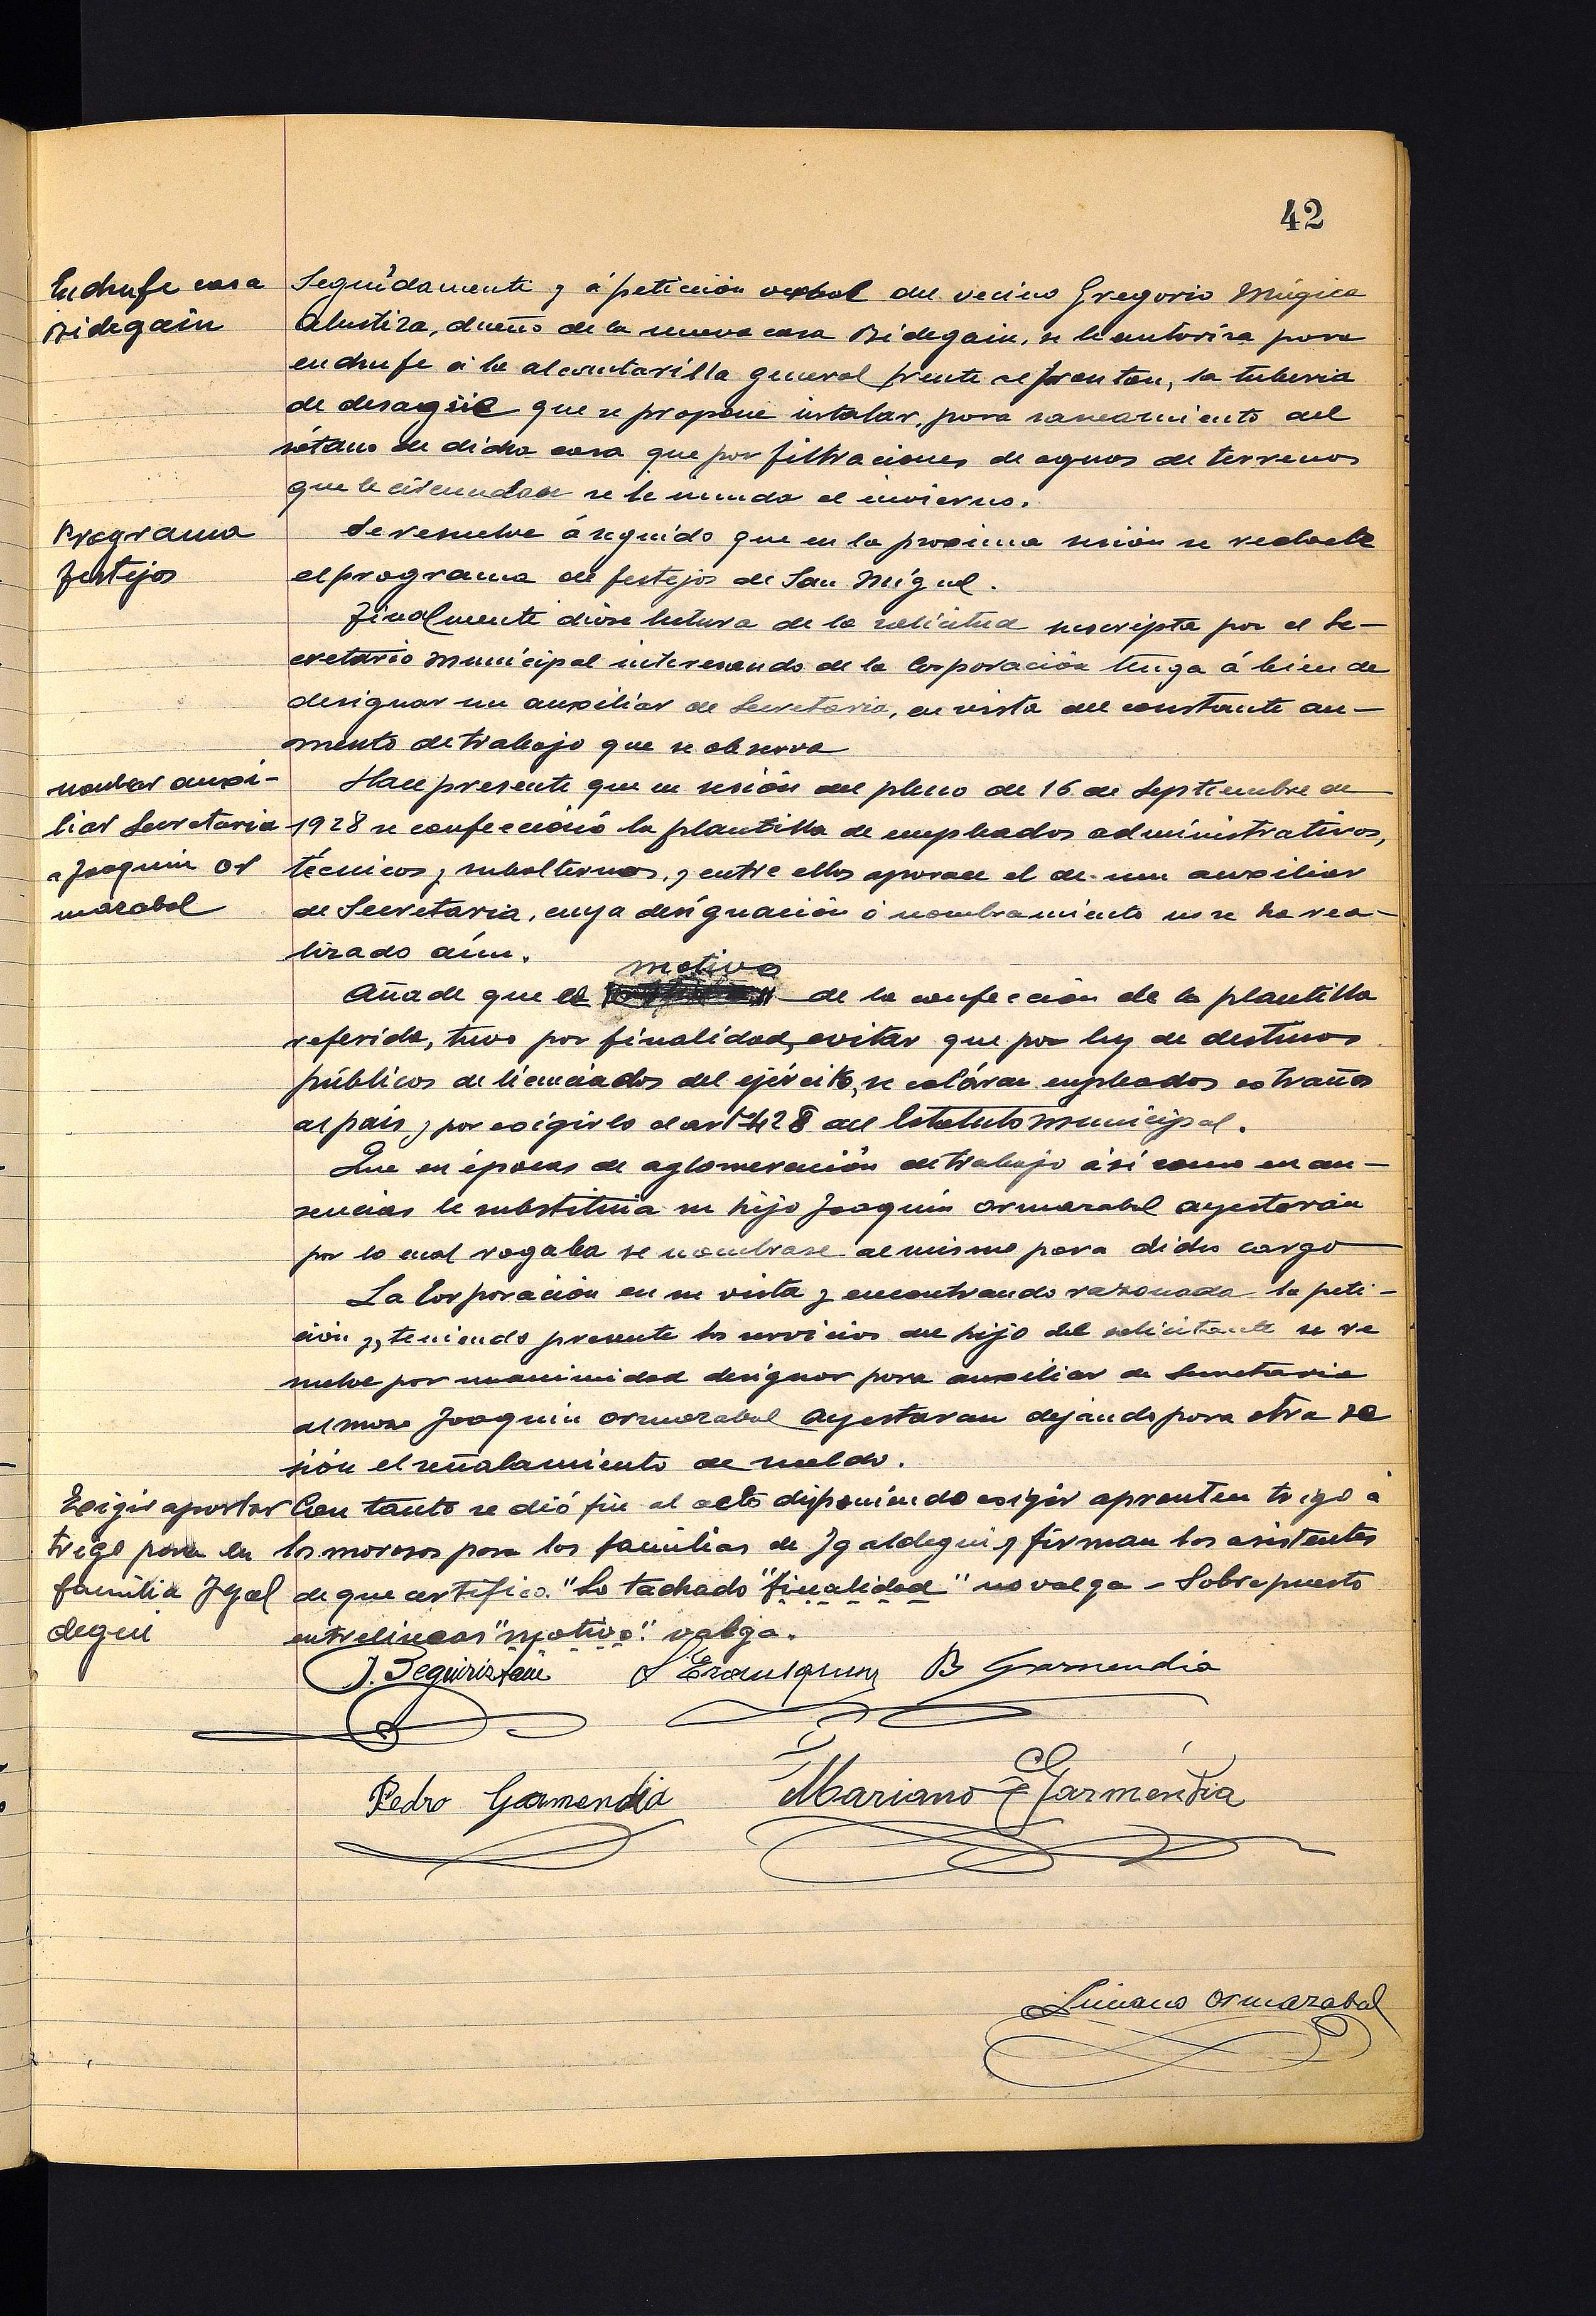 42
Enchufe casa
Bidegain
Seguidamente y á petición verbal del vecino Gregorio Múgica
Alustiza, dueño de la nueva casa Bidegain, se le autoriza para
enchufe á la alcantarilla general frente al fronton, la tuberia
de desagüe que se propone instalar, para saneamiento del
sótano de dicha casa que por filtraciones de aguas de terrenos
que le circundan se le inunda el invierno.
Programa
festejos
Se resuelve á seguido que en la proxima sesión se redacte
el programa de festejos de San Miguel.
Finalmente dióse lectura de la solicitud suscripta por el Se-
cretario Municipal interesando de la Corporación tenga á bien de
designar un auxiliar de Secretaria, en vista del constante au-
mento de trabajo que se observa
nombrar auxi-
liar Secretaria
a Joaquin Or
mazabal
Hace presente que en sesión del pleno de 16 de Septiembre de
1928 se confeccionó la plantilla de empleados administrativos,
técnicos y subalternos, y entre ellos aparece el de un auxiliar
de Secretaria, cuya designación ó nombramiento no se ha rea-
lizado aún.
motivo
Añade que el de la confección de la plantilla
referida, tuvo por finalidad, evitar que por ley de destinos
públicos de licenciados del ejército, se colóran empleados extraños
al pais y por exigirlo el artº 428 del Estatuto Municipal.
Que en épocas de aglomeración de trabajo ási como en au-
sencias le substituia su hijo Joaquin Ormazabal Ayestarán
por lo cual rogaba se nombrase al mismo para dicho cargo
La Corporación en su vista y encontrando razonada la peti-
ción y, teniendo presente los servicios del hijo del solicitante se re
suelve por unanimidad designar para auxiliar de Secretaria
al mozo Joaquin Ormazabal Ayestaran dejando para otra se
sión el señalamiento de sueldo.
Exigir aportar
trigo para la
familia Ygal
degui
Con tanto se dió fin al acto disponiendo exigir apronten trigo á
los morosos para los familias de Ygaldegui y firman los asistentes
de que certifico. "Lo tachado "finalidad" no valga - Sobrepuesto
entrelineas "motivo". valga.
J. Seguiristain L Erausquin B Garmendia
Pedro Garmendia Mariano Garmendia
Luciano Ormazabal